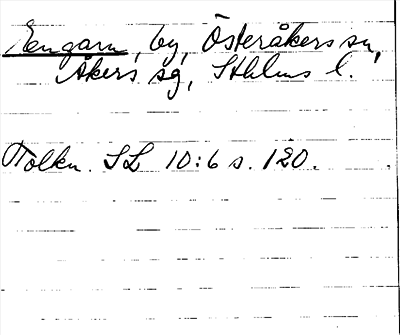 Rengarn, by, Österåkers sn,
Åkers sg, Sthlms l.
Tolkn. SL 10:6 s. 120.